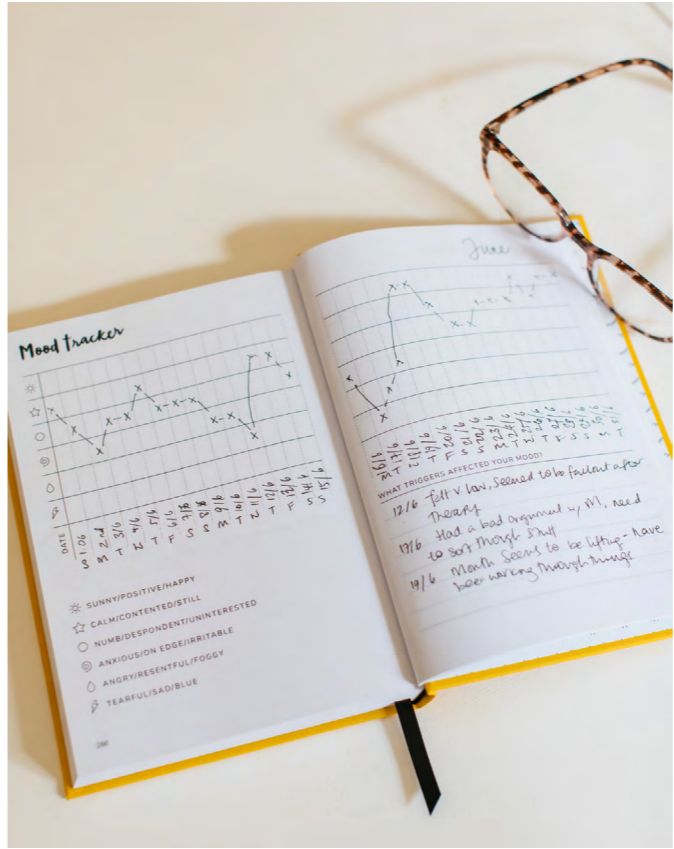 Mood tracker
DATE
S 1.06
M 2nd
T 3/6
W 4/6
T 5/6
F 6/6
S 7/6
S 8/6
M 9/6
T 10/6
W 11/6
T 12/6
F 13/6
S 14/6
S 15/6
SUNNY/POSITIVE/HAPPY
CALM/CONTENTED/STILL
NUMB/DESPONDENT/UNINTERESTED
ANXIOUS/ON EDGE/IRRITABLE
ANGRY/RESENTFUL/FOGGY
TEARFUL/SAD/BLUE
June
M
T 17/6
T 19/6
F 20/6
S
S 22/6
M 23/6
T
W
T
F
S
S
M
T
WHAT TRIGGERS AFFECTED YOUR MOOD?
12/6 felt v low, seemed to be fallout after
Therapy
17/6 Had a bad argument w/ M, need
to sort through stuff
19/6 Month seems to be lifting - have
been working through things